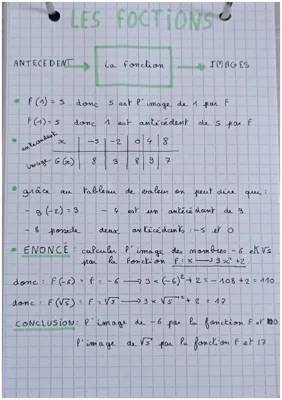 LES FOCTIONS
ANTECEDENT → La fonction → IMAGES
• F(1) = 5 donc 5 est l'image de 1 par F
F(1) = 5 donc 1 est antécédent de 5 par F
• antécédent x | -5 | -2 | 0 | 4 | 8
image G(x) | 8 | 3 | 8 | 9 | 7
• grâce au tableau de valeur on peut dire que :
- g(-2) = 3 - 4 est un antécédent de 9
- 8 possède deux antécédents : -5 et 0
• ENONCE : calculer l'image des nombres -6 et √5
par la fonction F : x → 3x²+2
donc : F(-6) = F = -6 → 3 × (-6)² + 2 = -108 + 2 = 110
donc : F(√5) = F = √5 → 3 × √5² + 2 = 17
CONCLUSION : l'image de -6 par la fonction F et 110
l'image de √5 par la fonction F et 17